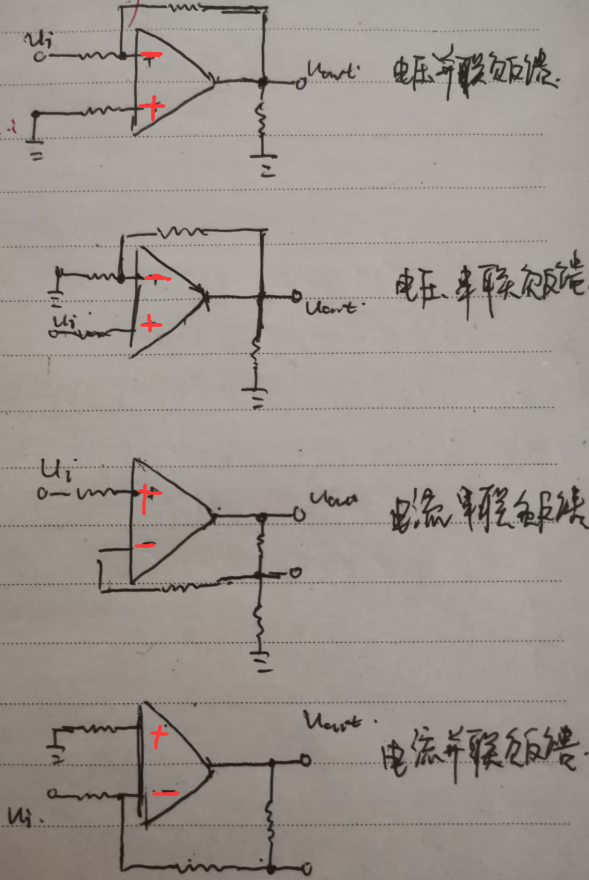 Ui
-
+
Uout.
电压并联负反馈.
-
+
Ui
Uout.
电压串联负反馈
Ui
+
-
Uout
电流串联负反馈
+
-
Ui.
Uout.
电流并联负反馈.